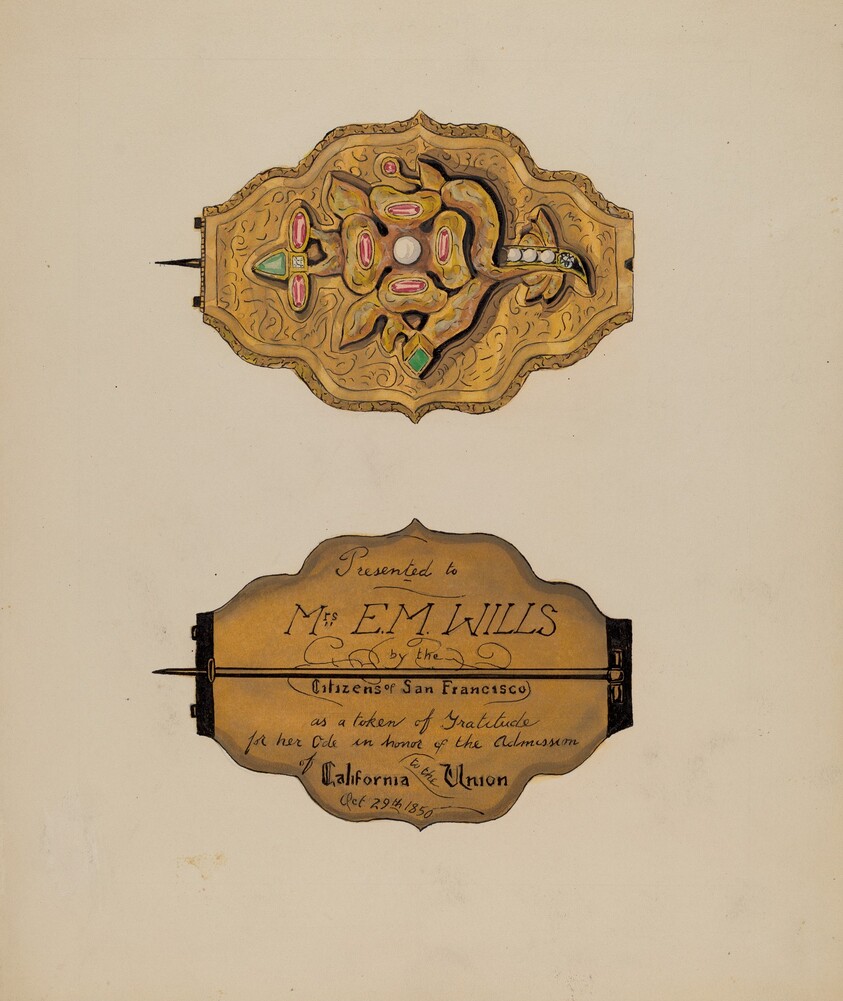 Presented to
Mrs E.M. WILLS
by the
Citizens of San Francisco
as a token of Gratitude
for her Ode in honor of the Admission
of California to the Union
Oct 29th 1850